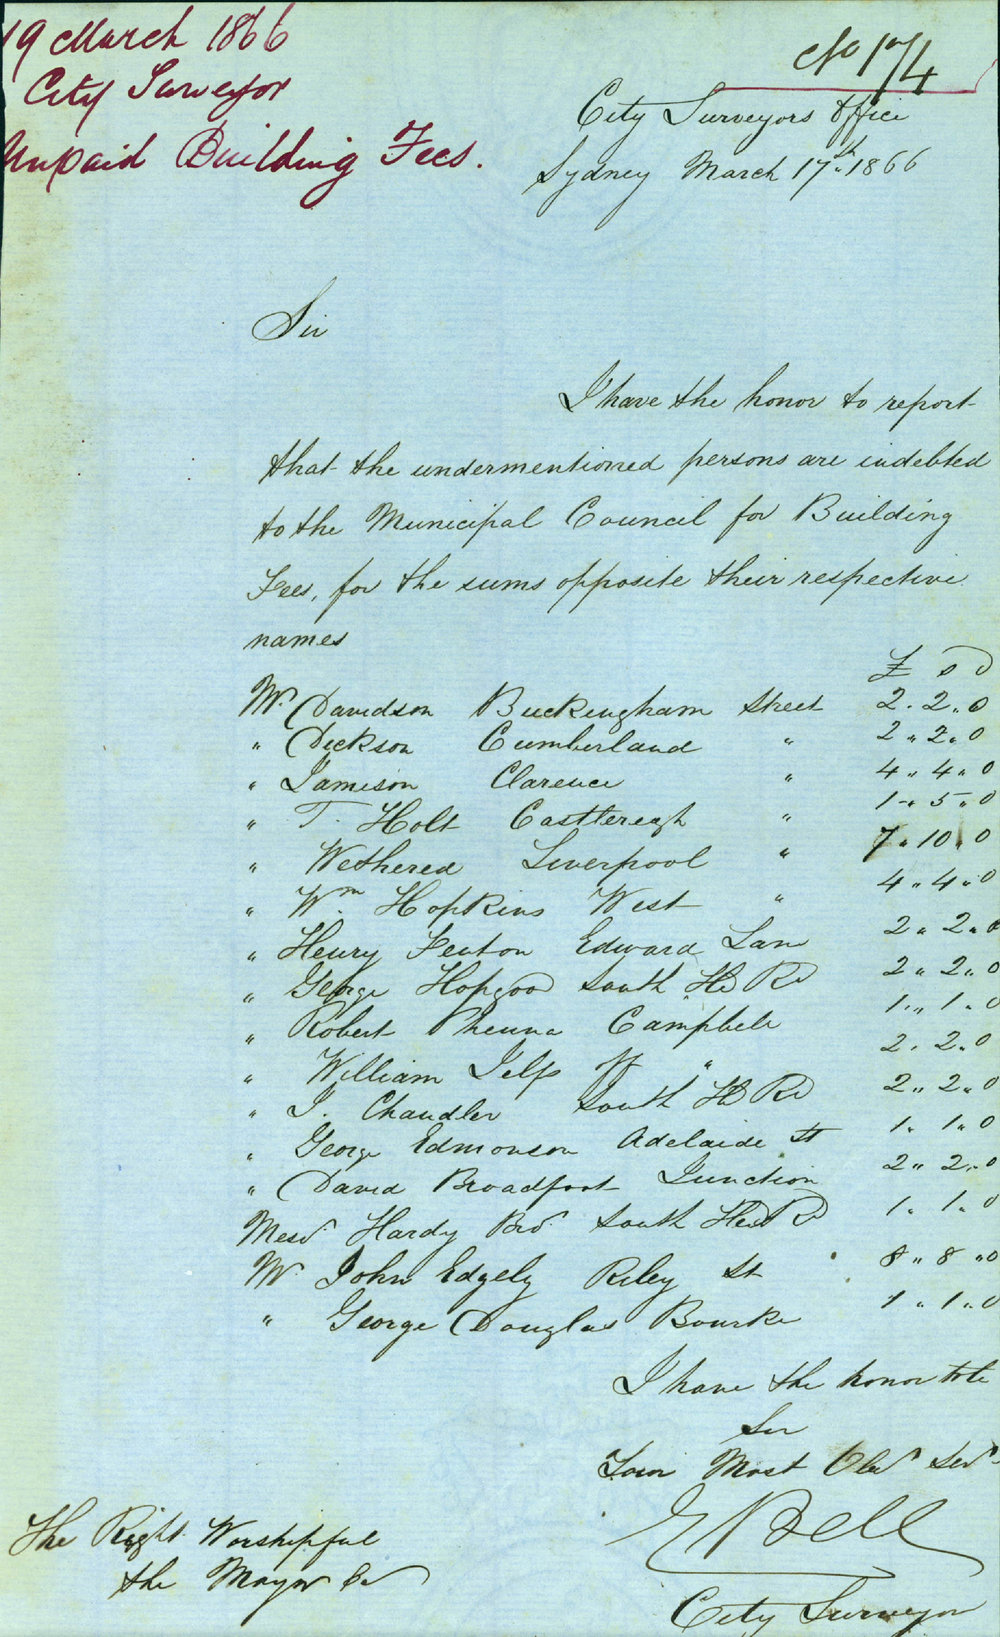 19 March 1866
City Surveyor
Unpaid Building Fees.
No 174
City Surveyors Office
Sydney March 17th 1866
Sir
I have the honor to report
that the undermentioned persons are indebted
to the Municipal Council for Building
Fees, for the sums opposite their respective
names
£ s d
Mr. Davidson Buckingham Street 2.2.0
" Dickson Cumberland " 2"2.0
" Jamison Clarence " 4"4"0
" T. Holt Castlereagh " 1"5"0
" Wethered Liverpool " 7"10"0
" Wm Hopkins West " 4"4"0
" Henry Fenton Edward Lane 2"2"0
" George Hopgood South Hd Rd 2"2"0
" Robert Campbell 1"1"0
" William off " 2.2.0
" J. Chandler South Hd Rd 2"2"0
" George Edmonson Adelaide St 1"1"0
" David Broadfoot Junction 2"2"0
Messrs. Hardy Bros. South Head Rd 1.1.0
Mr. John Edgely Riley St 8"8"0
" George Douglas Bourke 1"1"0
I have the honor to be
Sir
Your Most Obdt Servt
E Bell
City Surveyor
The Right Worshipful
the Mayor &c